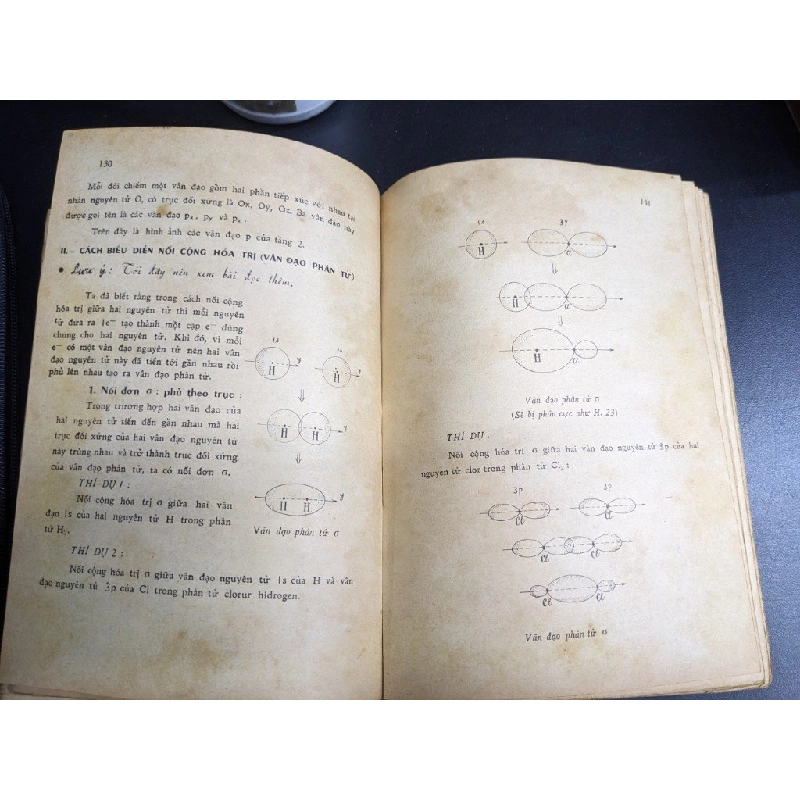 130
Mỗi đôi chiếm một vân đạo gồm hai phần tiếp xúc với nhau tại
nhân nguyên tử O, có trục đối xứng là Ox, Oy, Oz. Ba vân đạo này
được gọi tên là các vân đạo pₓ, pᵧ và p_z.
Trên đây là hình ảnh các vân đạo p của tầng 2.
II. - CÁCH BIỂU DIỄN NỐI CỘNG HÓA TRỊ (VÂN ĐẠO PHÂN TỬ)
• Lưu ý : Tới đây nên xem bài đọc thêm.
Ta đã biết rằng trong cách nối cộng
hóa trị giữa hai nguyên tử thì mỗi nguyên
tử đưa ra 1e⁻ tạo thành một cặp e⁻ dùng
chung cho hai nguyên tử. Khi đó, vì mỗi
e⁻ có một vân đạo nguyên tử nên hai vân
đạo nguyên tử này đã tiến tới gần nhau rồi
phủ lên nhau tạo ra vân đạo phân tử.
1. Nối đơn σ : phủ theo trục :
Trong trường hợp hai vân đạo của
hai nguyên tử tiến đến gần nhau mà hai
trục đối xứng của hai vân đạo nguyên tử
này trùng nhau và trở thành trục đối xứng
của vân đạo phân tử, ta có nối đơn σ.
THÍ DỤ 1 :
Nối cộng hóa trị σ giữa hai vân
đạo 1s của hai nguyên tử H trong phân
tử H₂.
H H
H H
H H
Vân đạo phân tử σ
THÍ DỤ 2 :
Nối cộng hóa trị σ giữa vân đạo nguyên tử 1s của H và vân
đạo nguyên tử 3p của Cl trong phân tử clorur hidrogen.
H
H
H
Vân đạo phân tử σ
(Sẽ bị phân cực như H. 23)
THÍ DỤ :
Nối cộng hóa trị σ giữa hai vân đạo nguyên tử 3p của hai
nguyên tử clor trong phân tử Cl₂ :
3p
Cl Cl
Cl Cl
Cl Cl
Vân đạo phân tử σ